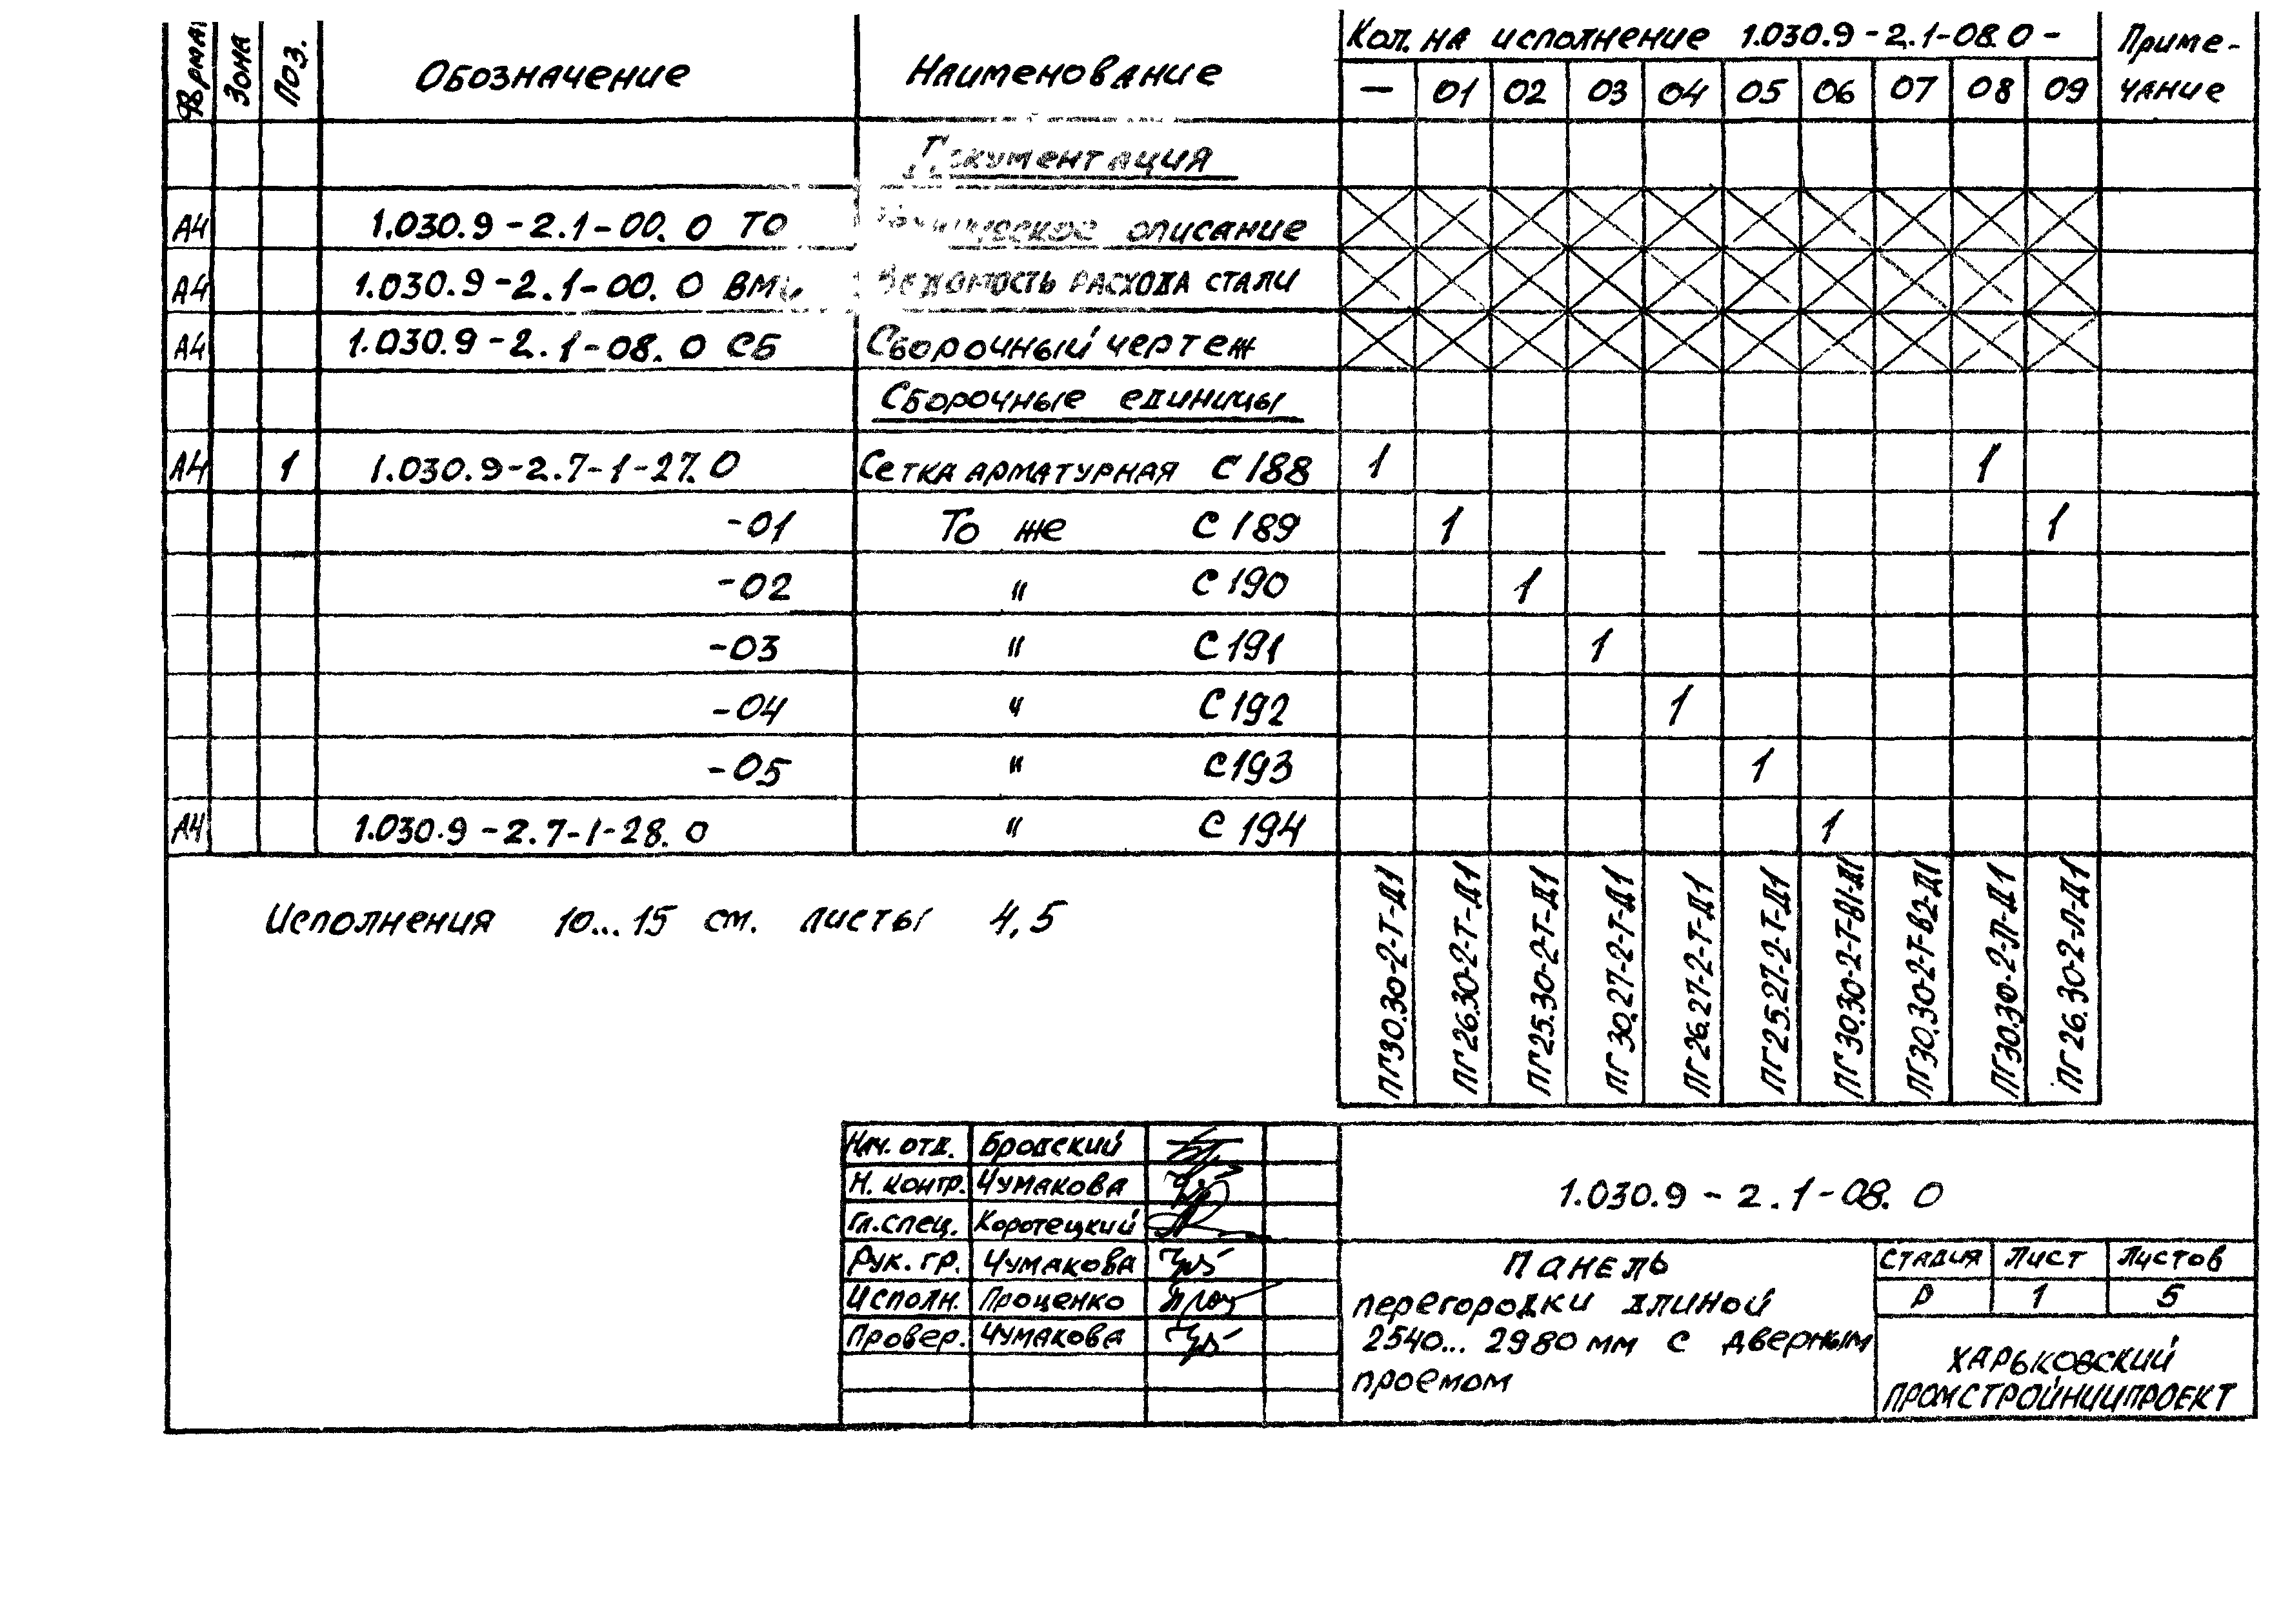 Форма Зона Поз. Обозначение Наименование Кол. на исполнение 1.030.9-2.1-08.0- Приме-
чание
— 01 02 03 04 05 06 07 08 09
Документация
А4 1.030.9-2.1-00.0 ТО Техническое описание
А4 1.030.9-2.1-00.0 ВМС Ведомость расхода стали
А4 1.030.9-2.1-08.0 СБ Сборочный чертеж
Сборочные единицы
А4 1 1.030.9-2.7-1-27.0 Сетка арматурная С188 1 1
-01 То же С189 1 1
-02 " С190 1
-03 " С191 1
-04 " С192 1
-05 " С193 1
А4 1.030.9-2.7-1-28.0 " С194 1
Исполнения 10...15 см. листы 4,5
ПГ30.30-2-Т-Д1
ПГ26.30-2-Т-Д1
ПГ25.30-2-Т-Д1
ПГ30.27-2-Т-Д1
ПГ26.27-2-Т-Д1
ПГ25.27-2-Т-Д1
ПГ30.30-2-Т-В1-Д1
ПГ30.30-2-Т-В2-Д1
ПГ30.30-2-Л-Д1
ПГ26.30-2-Л-Д1
Нач. отд. Бродский
Н. контр. Чумакова
Гл. спец. Коротецкий
Рук. гр. Чумакова
Исполн. Проценко
Провер. Чумакова
1.030.9-2.1-08.0
Панель
перегородки длиной
2540...2980 мм с дверным
проемом
Стадия Лист Листов
Р 1 5
Харьковский
ПРОМСТРОЙНИИПРОЕКТ